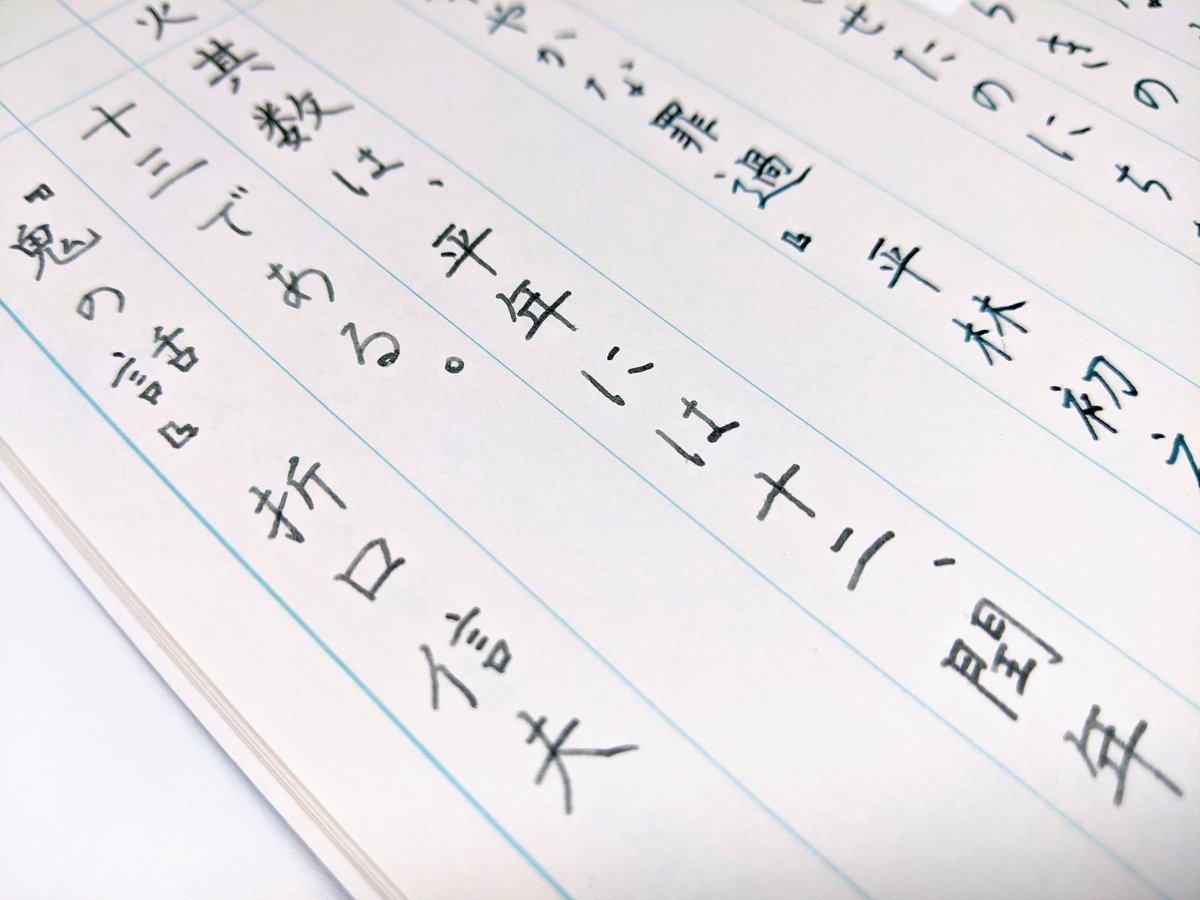 きの
せたのにち
やかな罪過』平林初之
火
其数は、平年には十二、閏年
十三である。
『鬼の話』折口信夫